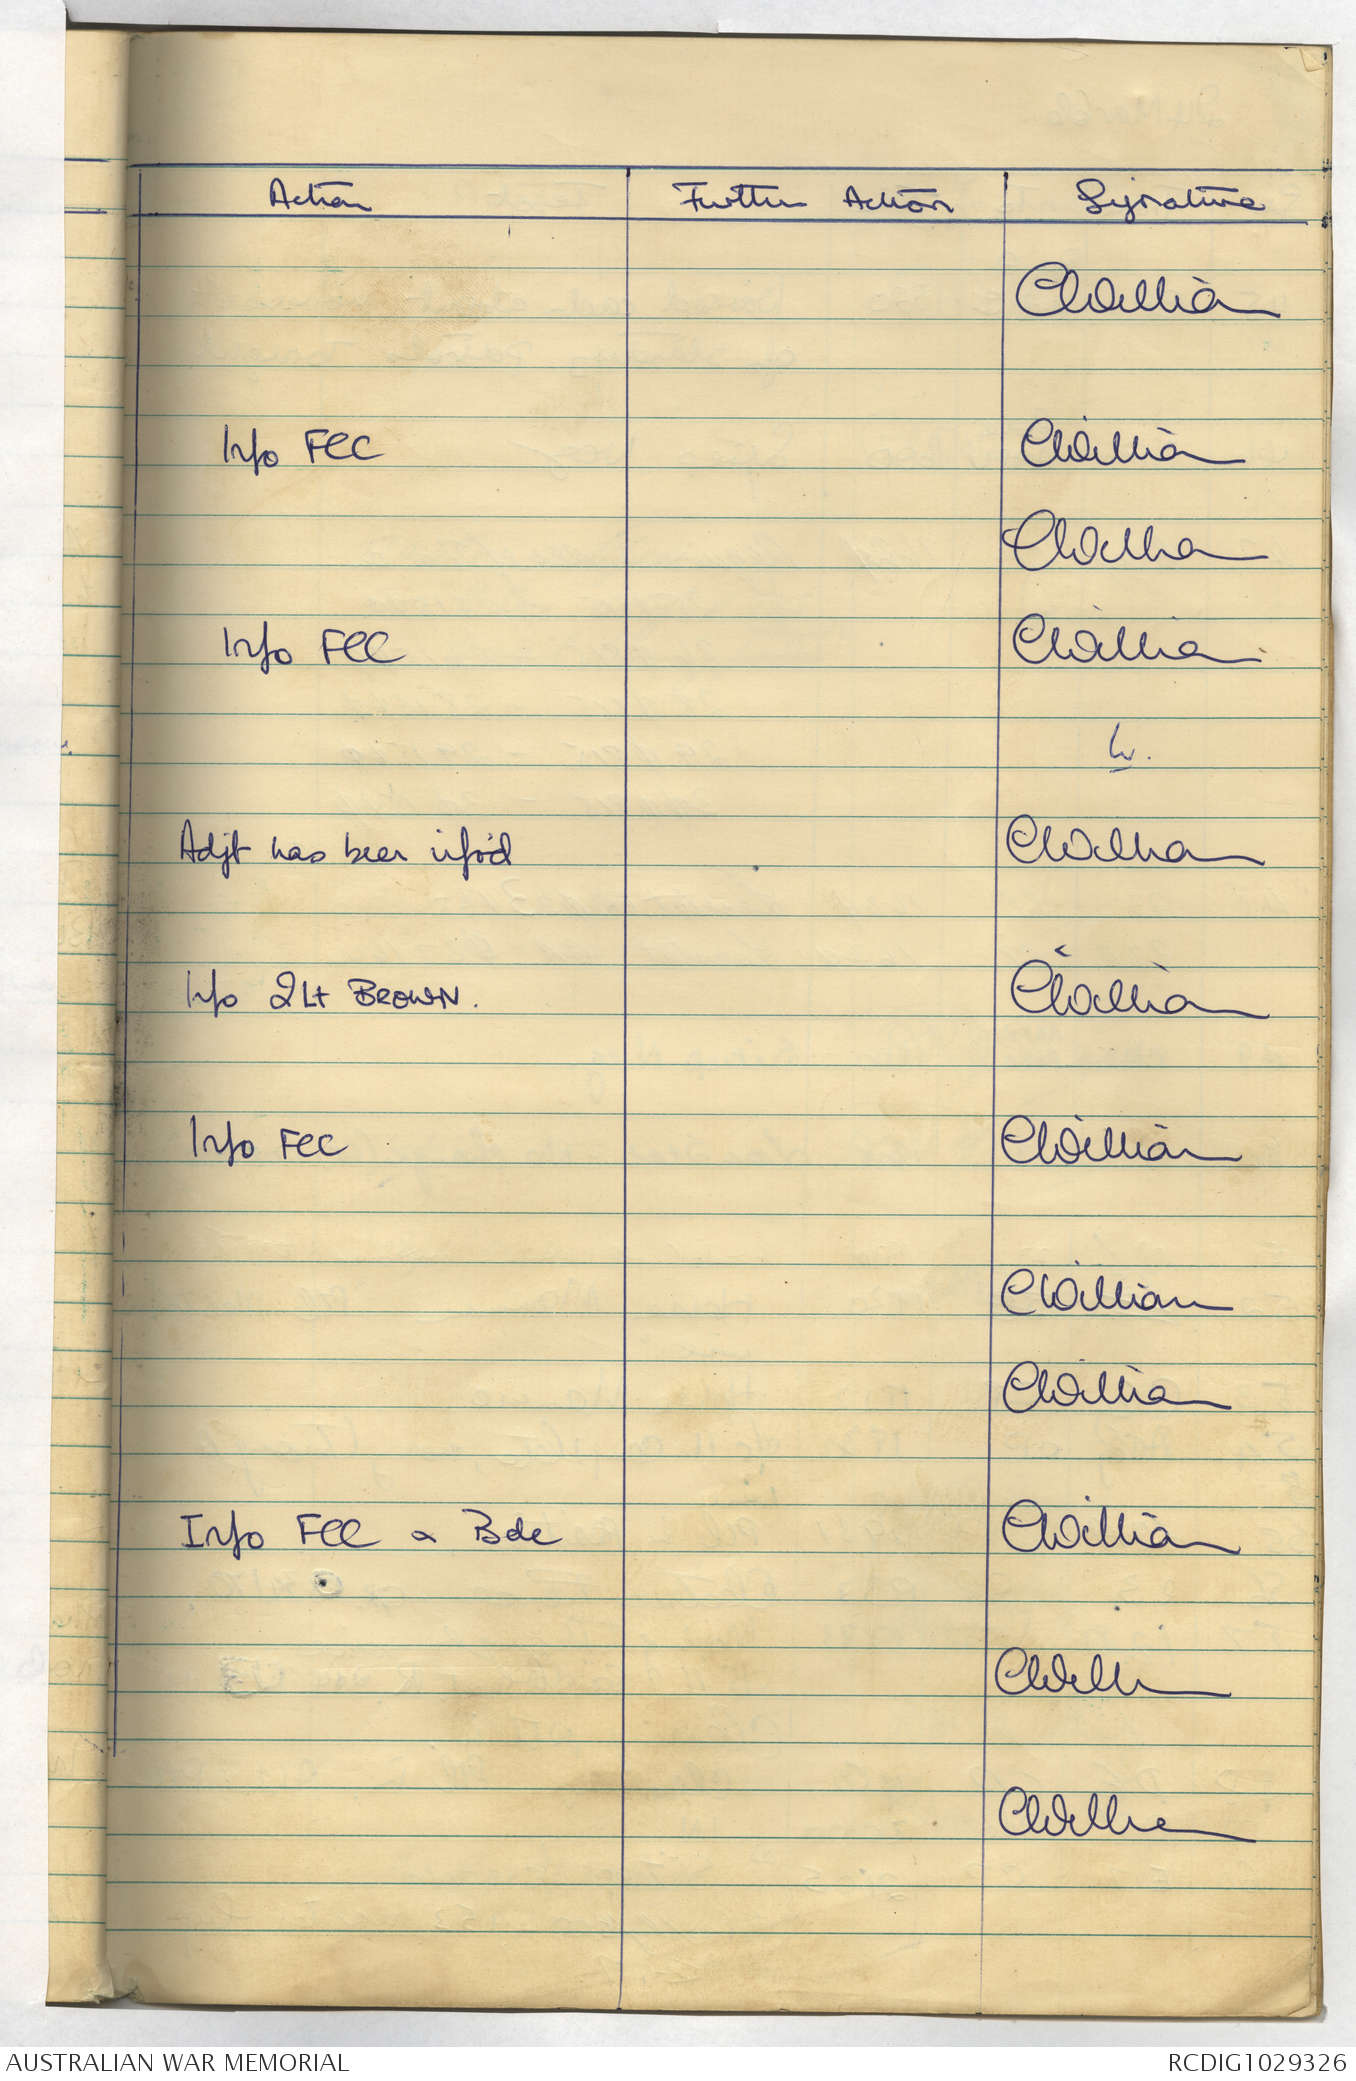 Action Further Action Signature
CWillian
Info FCC CWillian
CWillian
Info FCC CWillian
Adjt has been info'd CWillian
Info 2Lt BROWN. CWillian
Info FCC CWillian
CWillian
CWillian
Info FCC & Bde CWillian
CWillian
CWillian
AUSTRALIAN WAR MEMORIAL RCDIG1029326